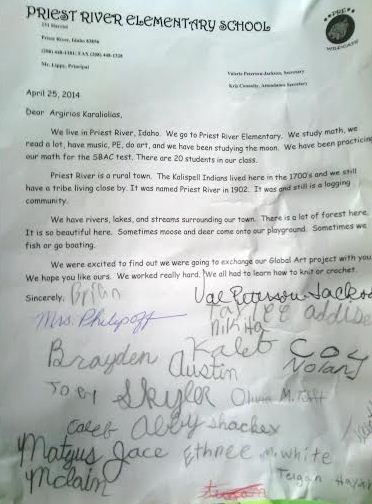 PRIEST RIVER ELEMENTARY SCHOOL
Priest River, Idaho 83856
Mr. Lappy, Principal
PRE
WILDCATS
Valerie Peterson-Jackson, Secretary
Kris Connolly, Attendance Secretary
April 25, 2014
Dear Argirios Karaliolias,
We live in Priest River, Idaho. We go to Priest River Elementary. We study math, we
read a lot, have music, PE, do art, and we have been studying the moon. We have been practicing
our math for the SBAC test. There are 20 students in our class.
Priest River is a rural town. The Kalispell Indians lived here in the 1700's and we still
have a tribe living close by. It was named Priest River in 1902. It was and still is a logging
community.
We have rivers, lakes, and streams surrounding our town. There is a lot of forest here.
It is so beautiful here. Sometimes moose and deer come onto our playground. Sometimes we
fish or go boating.
We were excited to find out we were going to exchange our Global Art project with you.
We hope you like ours. We worked really hard. We all had to learn how to knit or crochet.
Sincerely,
Val Peterson-Jackso
Mrs. Philipoff
Nikita
Brayden
Kaleb
Coy
Austin
Nolan
Joey
Skyler
Olivia M.
Caleb
Abby
Matyus
Jace
Ethnee
White
Mclain
Teigan